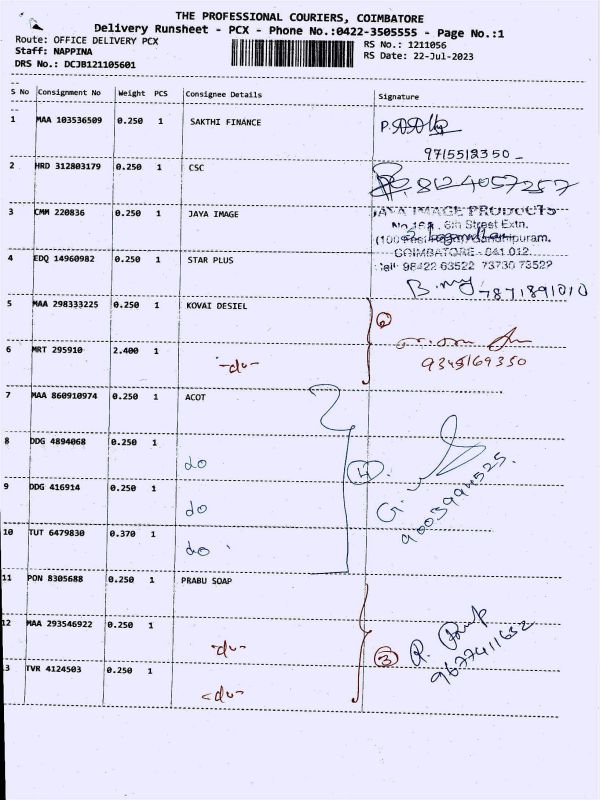 THE PROFESSIONAL COURIERS, COIMBATORE
Delivery Runsheet - PCX - Phone No.:0422-3505555 - Page No.:1
Route: OFFICE DELIVERY PCX
RS No.: 1211056
Staff: NAPPINA
RS Date: 22-Jul-2023
DRS No.: DCJB121105601
S No Consignment No Weight PCS Consignee Details Signature
1 MAA 103536509 0.250 1 SAKTHI FINANCE
9715512350
2 HRD 312803179 0.250 1 CSC
8124057257
3 CMM 220836 0.250 1 JAYA IMAGE
JAYA IMAGE PRODUCTS
6th Street Extn.
Gandhipuram,
COIMBATORE - 641 012.
Cell: 98422 63522 73730 73522
4 EDQ 14960982 0.250 1 STAR PLUS
7871891010
5 MAA 298333225 0.250 1 KOVAI DESIEL
6 MRT 295910 2.400 1 -do-
9345169350
7 MAA 860910974 0.250 1 ACOT
8 DDG 4894068 0.250 1 do
4
9 DDG 416914 0.250 1 do
9003994525
10 TUT 6479830 0.370 1 do
11 PON 8305688 0.250 1 PRABU SOAP
12 MAA 293546922 0.250 1 -do-
3
9677411632
13 TVR 4124503 0.250 1 -do-